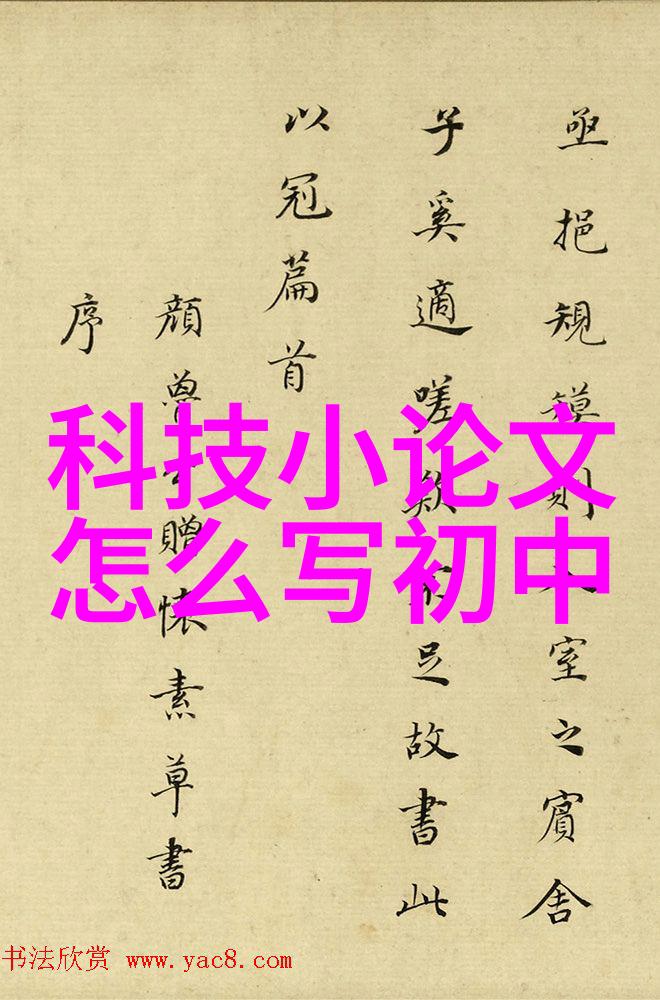 亟挹規則室之賓舍
子奚適嗟歎足故書此
以冠篇首
顔魯公贈懐素草書
序
科技小论文
怎么写初中
书法欣赏 www.yac8.com